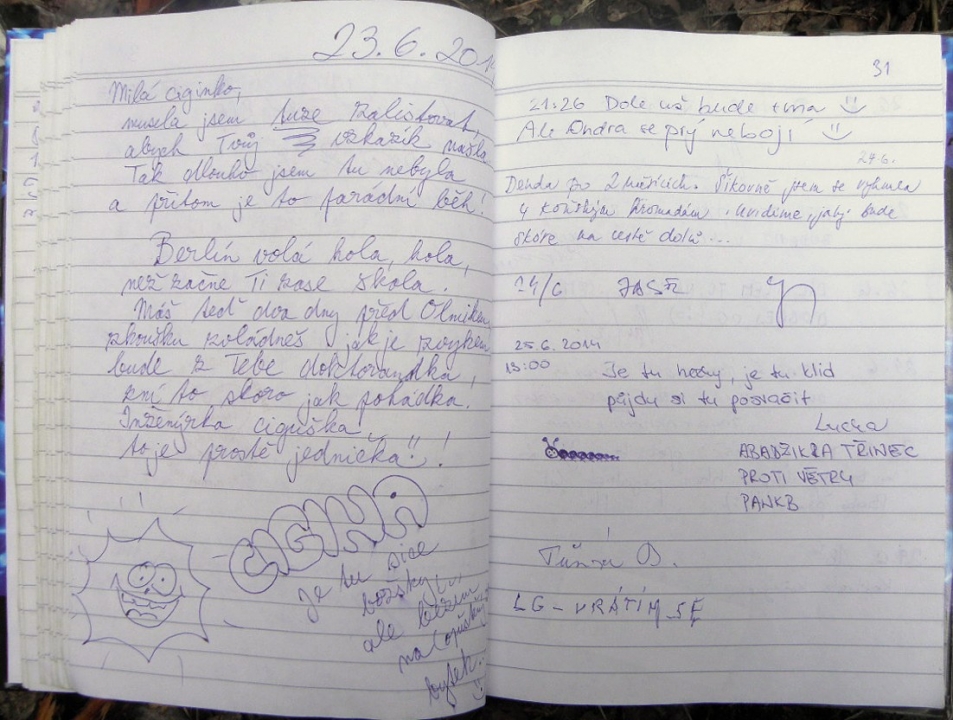 23.6.201
Milá ciginko,
musela jsem tuze zalistovat,
abych Tvůj vzkazík našla
Tak dlouho jsem tu nebyla
a přitom je to parádní běh!
Berlín volá hola, hola,
než začne Ti zase škola.
Máš teď dva dny před
zkoušku zvládneš jak je zvykem
bude z Tebe doktorandka,
zní to skoro jak pohádka.
Inženýrka ciguška
to je prostě jednička!!!
CIGINA
je tu sice
božsky,
ale běžím
na Lopušný
31
21:26 Dole už bude tma
Ale Ondra se prý nebojí
24.6.
Denda po 2 měsících. Šikovně jsem se vyhnula
4 koňským hromadám. Uvidíme, jaký bude
skóre na cestě dolů...
24/6
25.6.2014
19:00 Je tu hezky, je tu klid
půjdu si tu posvačit
Lucka
TŘINEC
PROTI VĚTRU
LG - VRÁTÍM SE